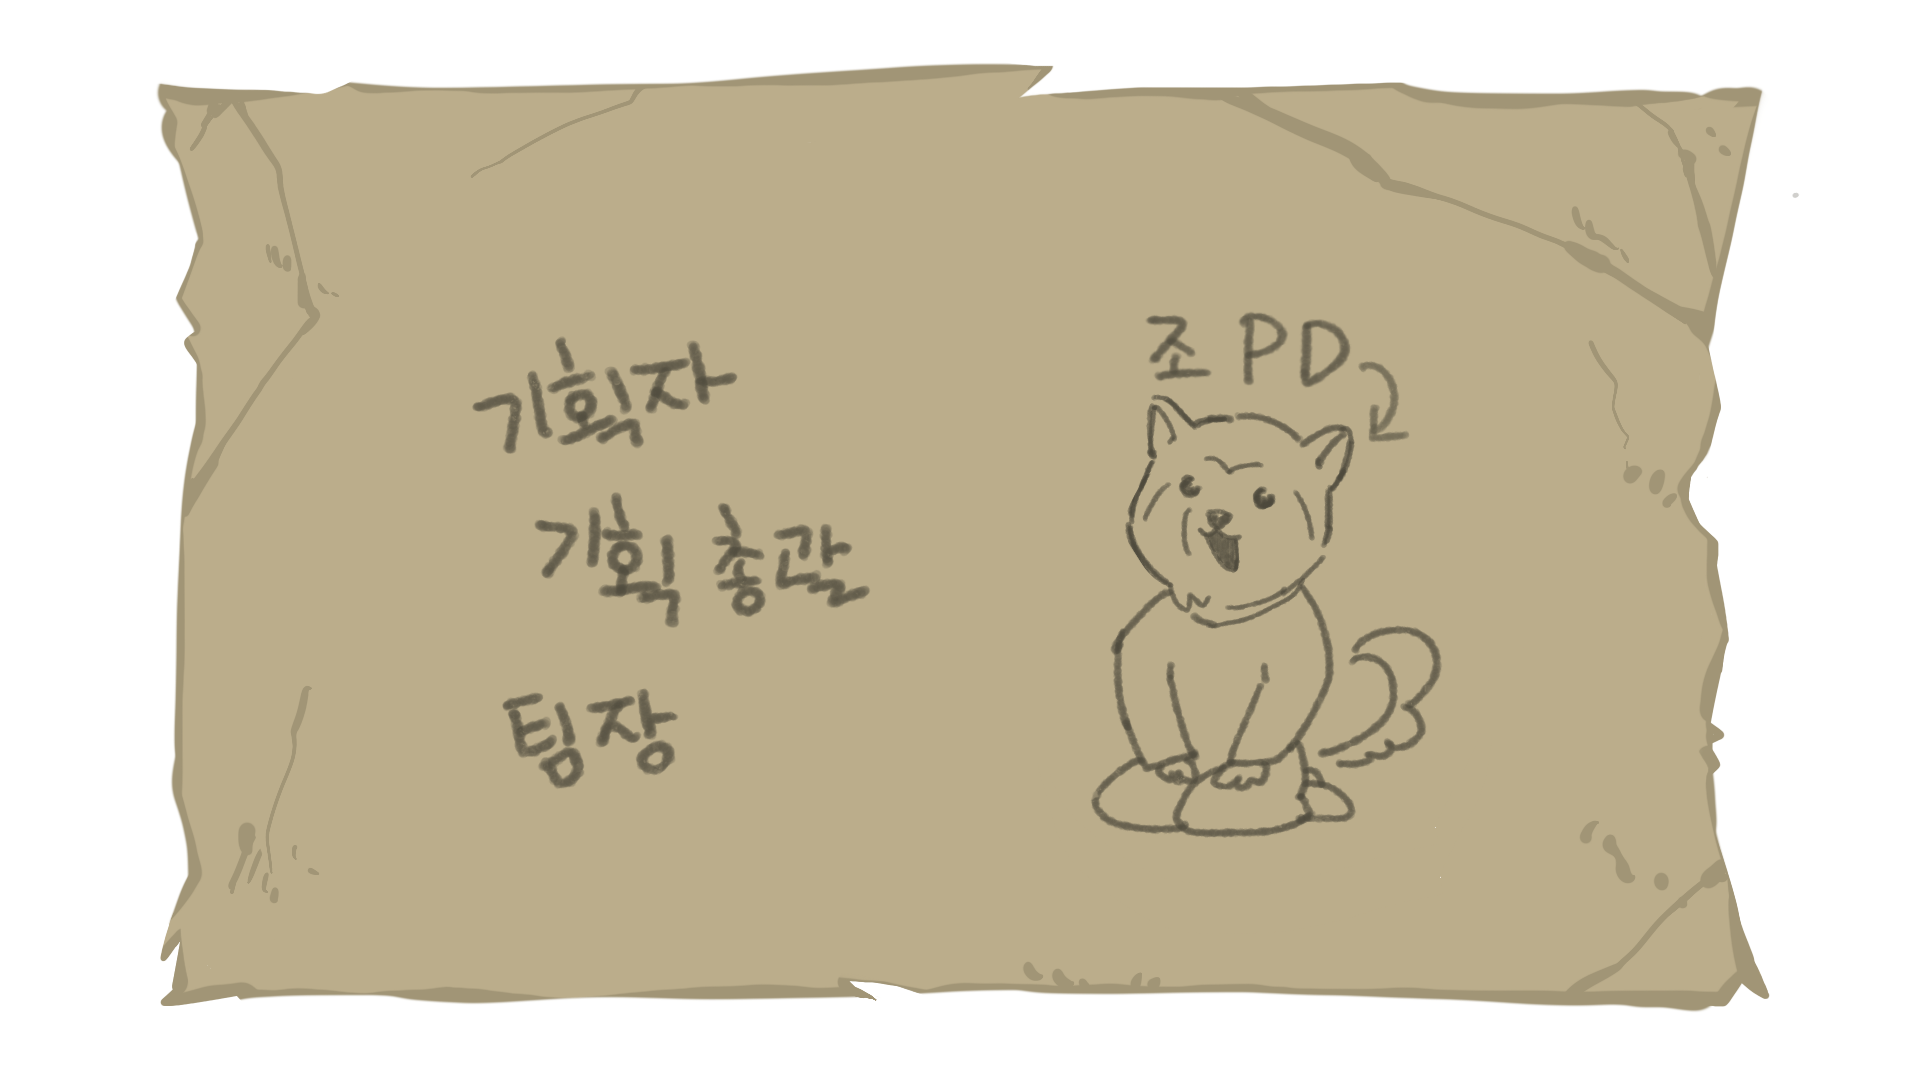 기획자
기획 총괄
팀장
조 PD